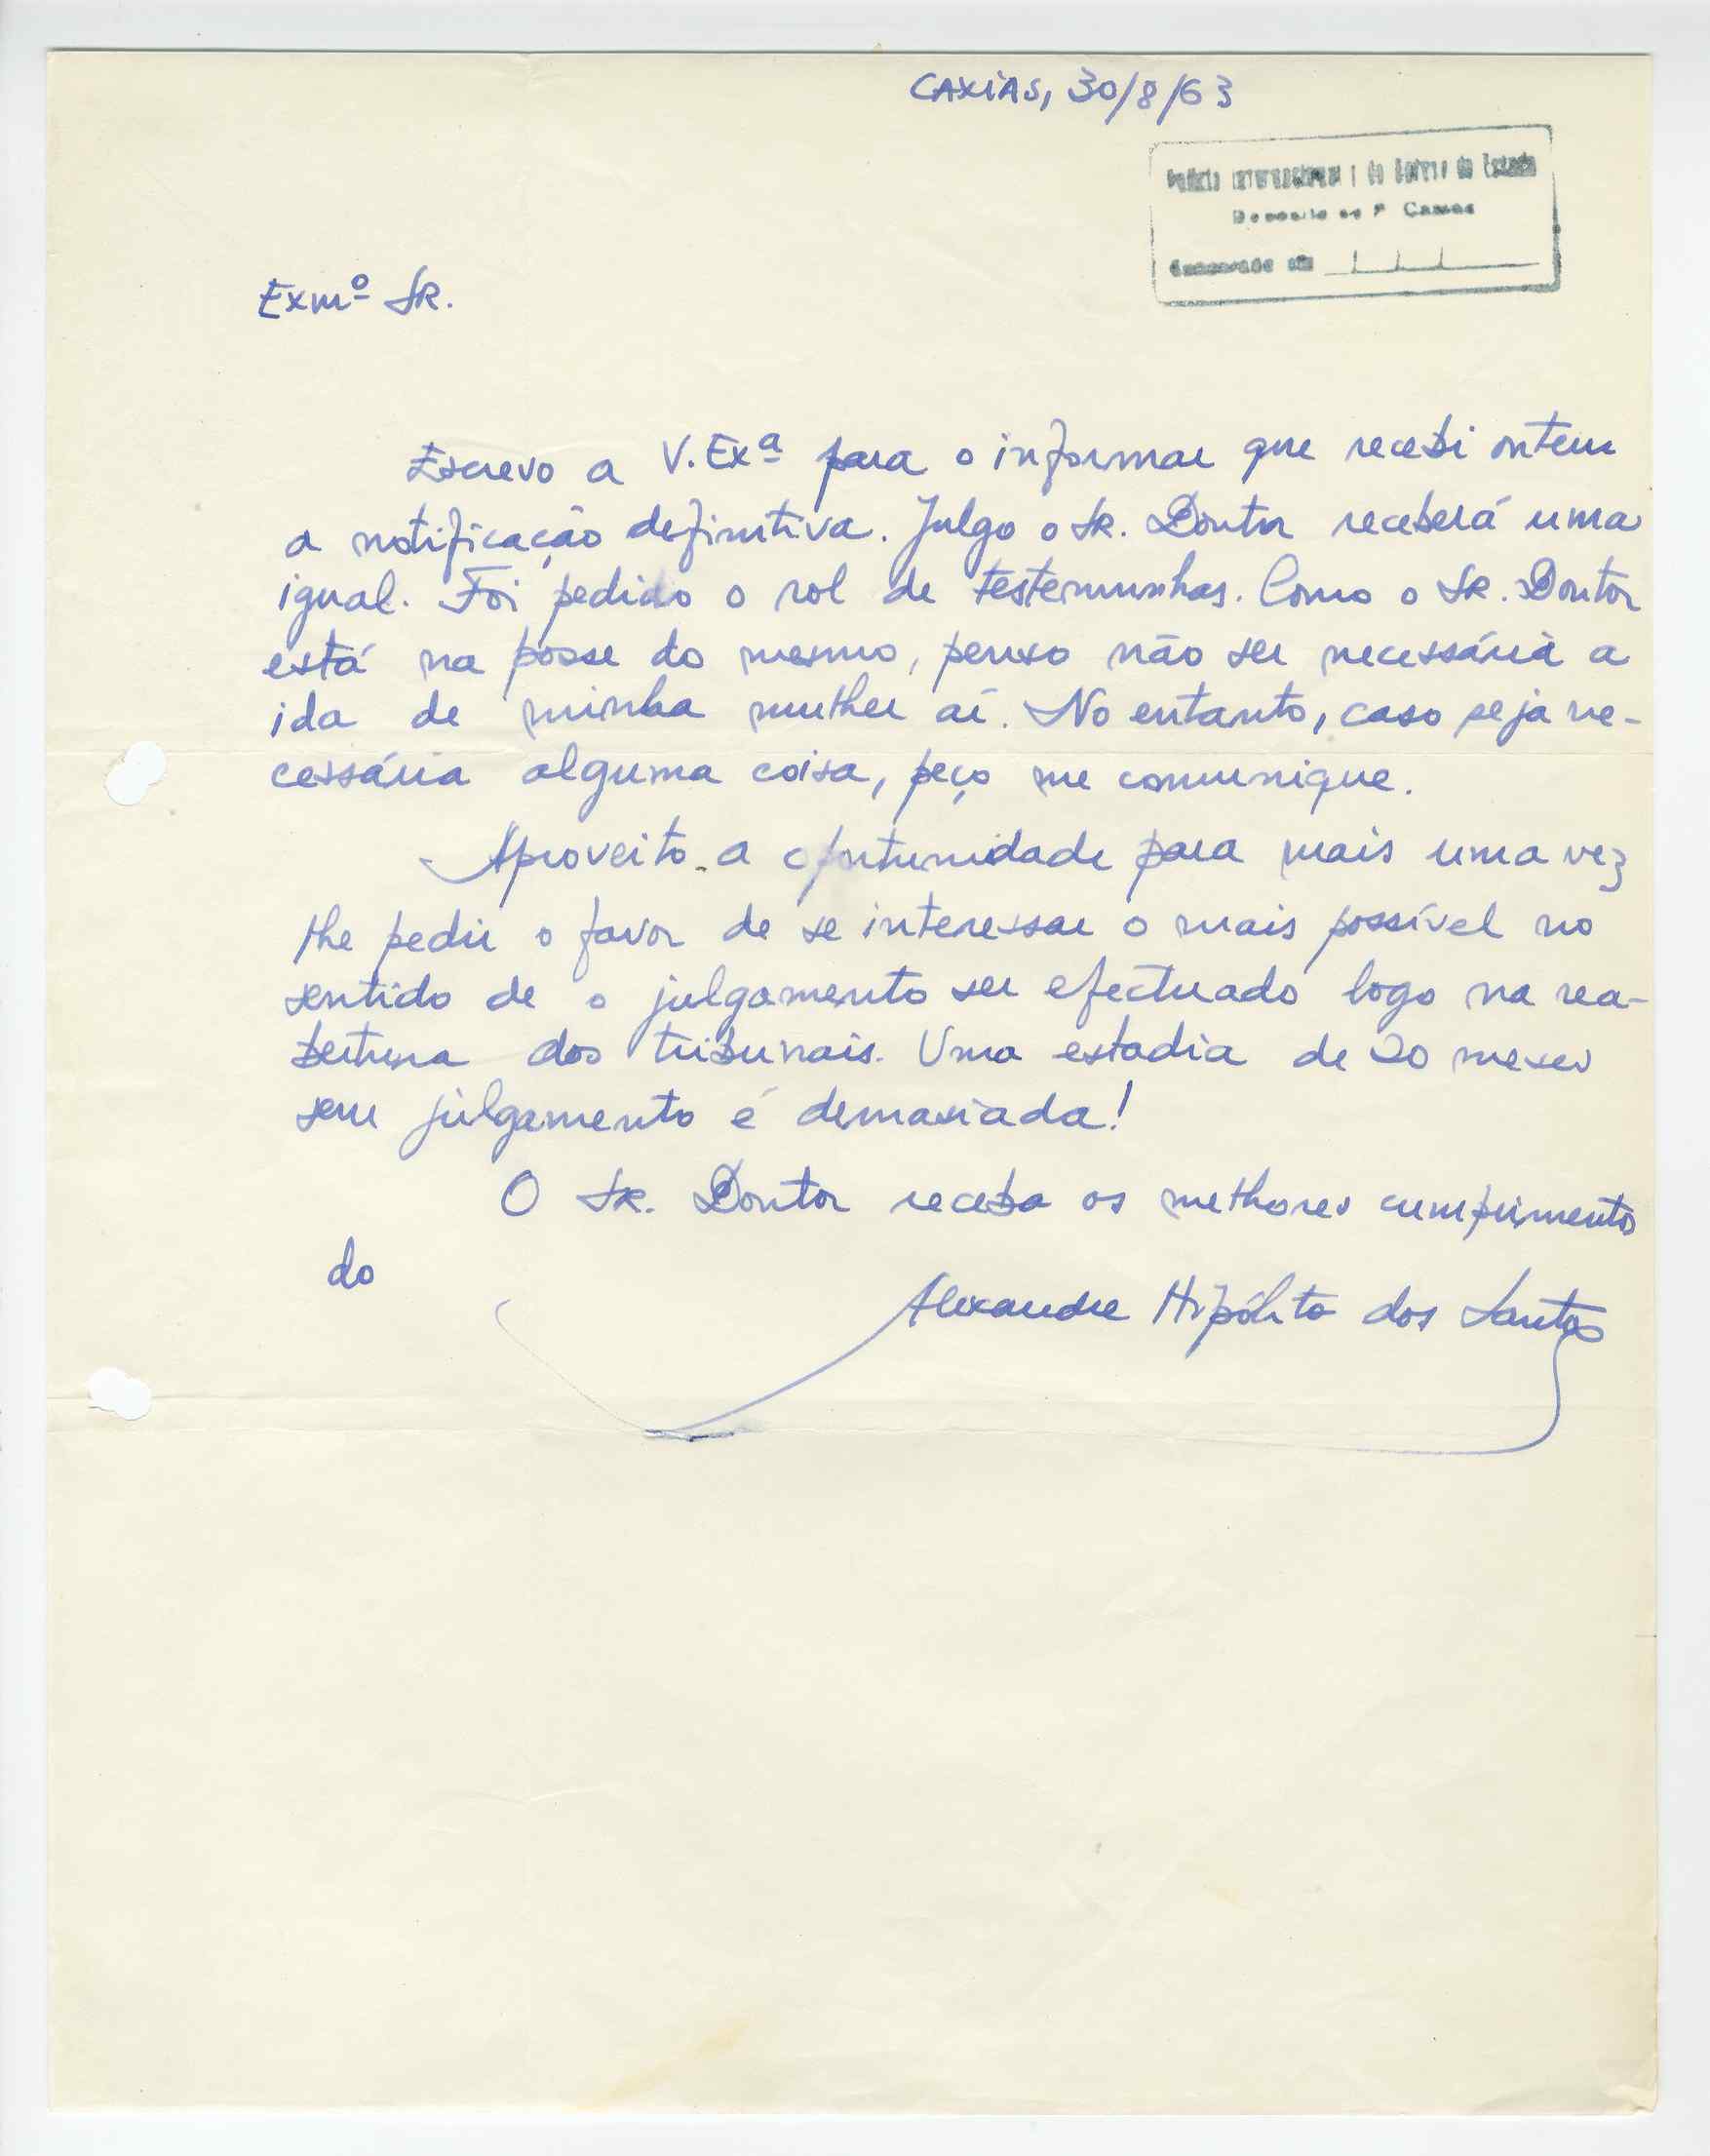 CAXIAS, 30/8/63
Polícia Internacional e de Defesa do Estado
Caxias
Censurado em
Exmº SR.
Escrevo a V.Exª para o informar que recebi ontem
a notificação definitiva. Julgo o SR. Doutor receberá uma
igual. Foi pedido o rol de testemunhas. Como o SR. Doutor
está na posse do mesmo, penso não ser necessária a
ida de minha mulher aí. No entanto, caso seja ne-
cessária alguma coisa, peço me comunique.
Aproveito a oportunidade para mais uma vez
lhe pedir o favor de se interessar o mais possível no
sentido de o julgamento ser efectuado logo na rea-
bertura dos tribunais. Uma estadia de 20 meses
sem julgamento é demasiada!
O SR. Doutor receba os melhores cumprimentos
do
Alexandre Hipólito dos Santos